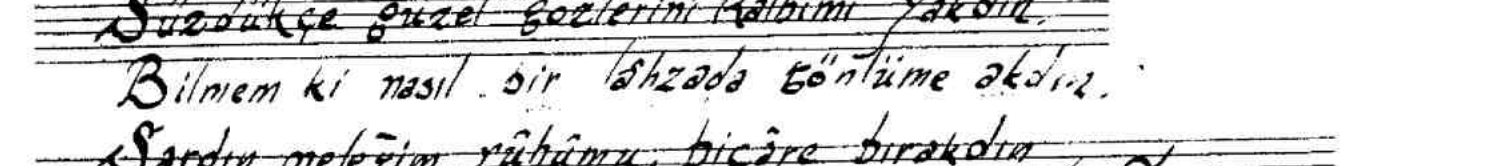 Süzdükçe güzel gözlerini kalbimi yakdın.
Bilmem ki nasıl bir lâhzada gönlüme akdın.
Sardın meleğim rûhûmu, biçâre bırakdın